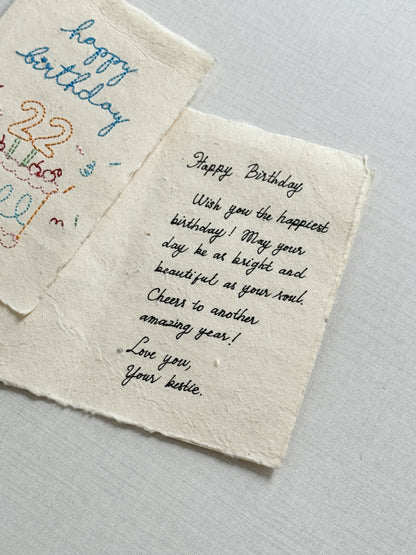 happy
birthday
22
Happy Birthday
Wish you the happiest
birthday! May your
day be as bright and
beautiful as your soul.
Cheers to another
amazing year!
Love you,
Your bestie.